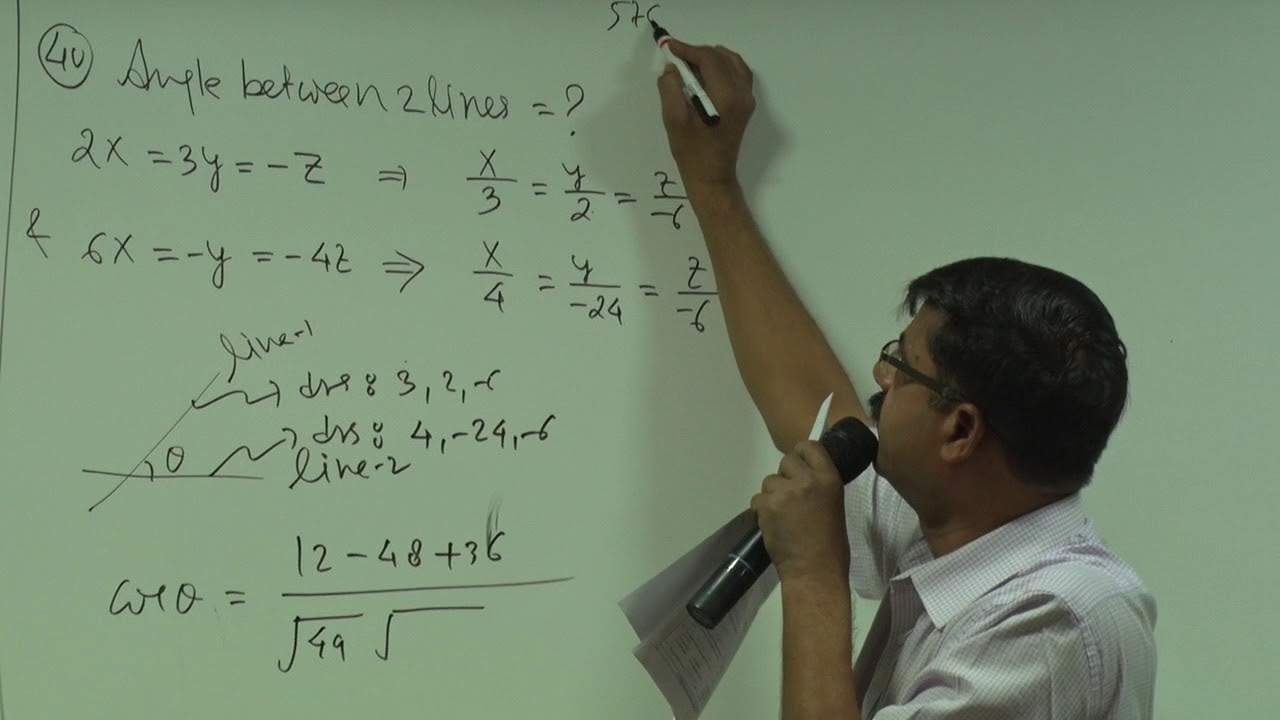 576
40 Angle between 2 lines = ?
2x = 3y = -z ⇒ x/3 = y/2 = z/-6
& 6x = -y = -4z ⇒ x/4 = y/-24 = z/-6
line-1
drs : 3, 2, -6
θ drs : 4, -24, -6
line-2
cos θ = 12 - 48 + 36 / √49 √